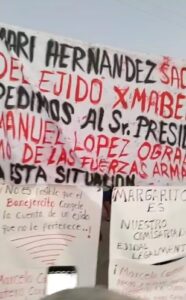 MARI HERNANDEZ SAC
DEL EJIDO X-MABE
PEDIMOS AL Sr. PRESI
MANUEL LOPEZ OBRA
MO DE LAS FUERZAS ARM
A ESTA SITUACION
¡NO ES posible que el
Banejercito Congele
la Cuenta de un ejido
que no le pertenece..!
MARGARITO
ES
NUESTRO
COMISARIA
EJIDAL LEGALMENT
Marcelo Ca
¡Marcelo Ca